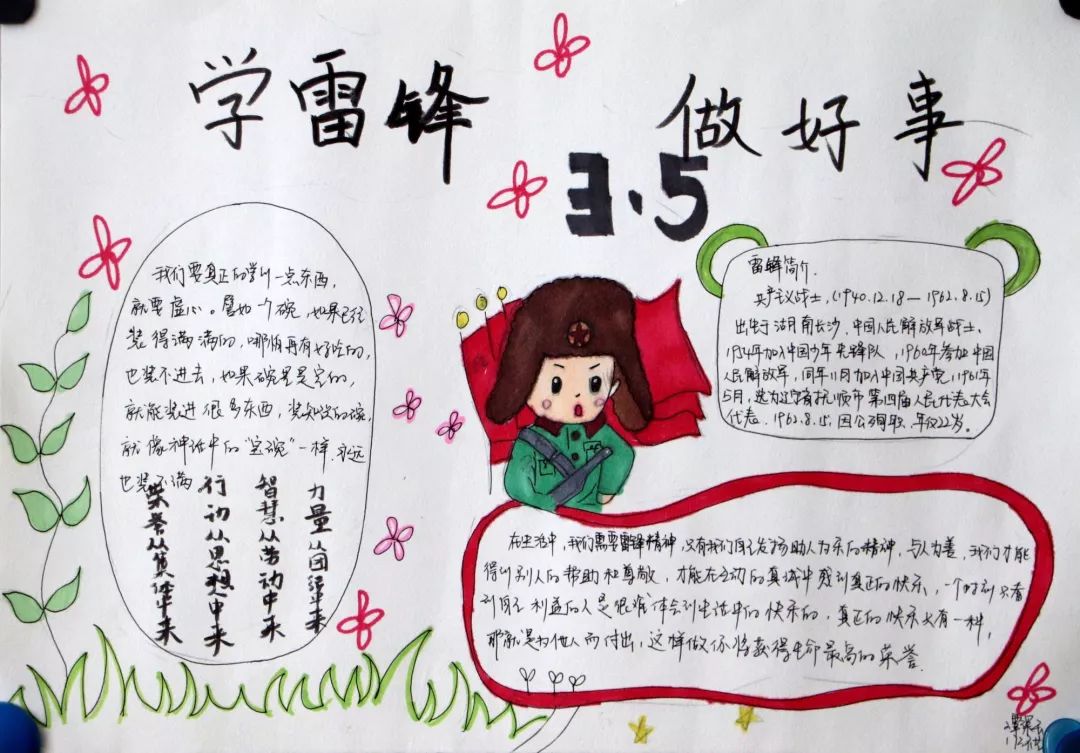 学雷锋 做好事
3.5
我们要真正的学习一点东西，
就要虚心。譬如一个碗，如果已经
装得满满的，哪怕再有好吃的，
也装不进去，如果碗里是空的，
就能装进很多东西，装知识的碗，
就像神话中的“宝碗”一样，永远
也装不满。
力量从团结中来
智慧从劳动中来
行动从思想中来
荣誉从集体中来
雷锋简介.
共产主义战士，(1940.12.18—1962.8.15)
出生于湖南长沙，中国人民解放军战士、
1954年加入中国少年先锋队，1960年参加中国
人民解放军，同年11月加入中国共产党，1961年
5月，选为辽宁省抚顺市第四届人民代表大会
代表，1962.8.15，因公殉职，年仅22岁。
在生活中，我们需要雷锋精神，只有我们自己发扬助人为乐的精神，与人为善，我们才能
得到别人的帮助和尊敬，才能在互动的真诚中感到真正的快乐，一个时刻只看
到自己利益的人是很难体会到生活中的快乐的，真正的快乐只有一种，
那就是为他人而付出，这样做你将获得生命最高的荣誉.